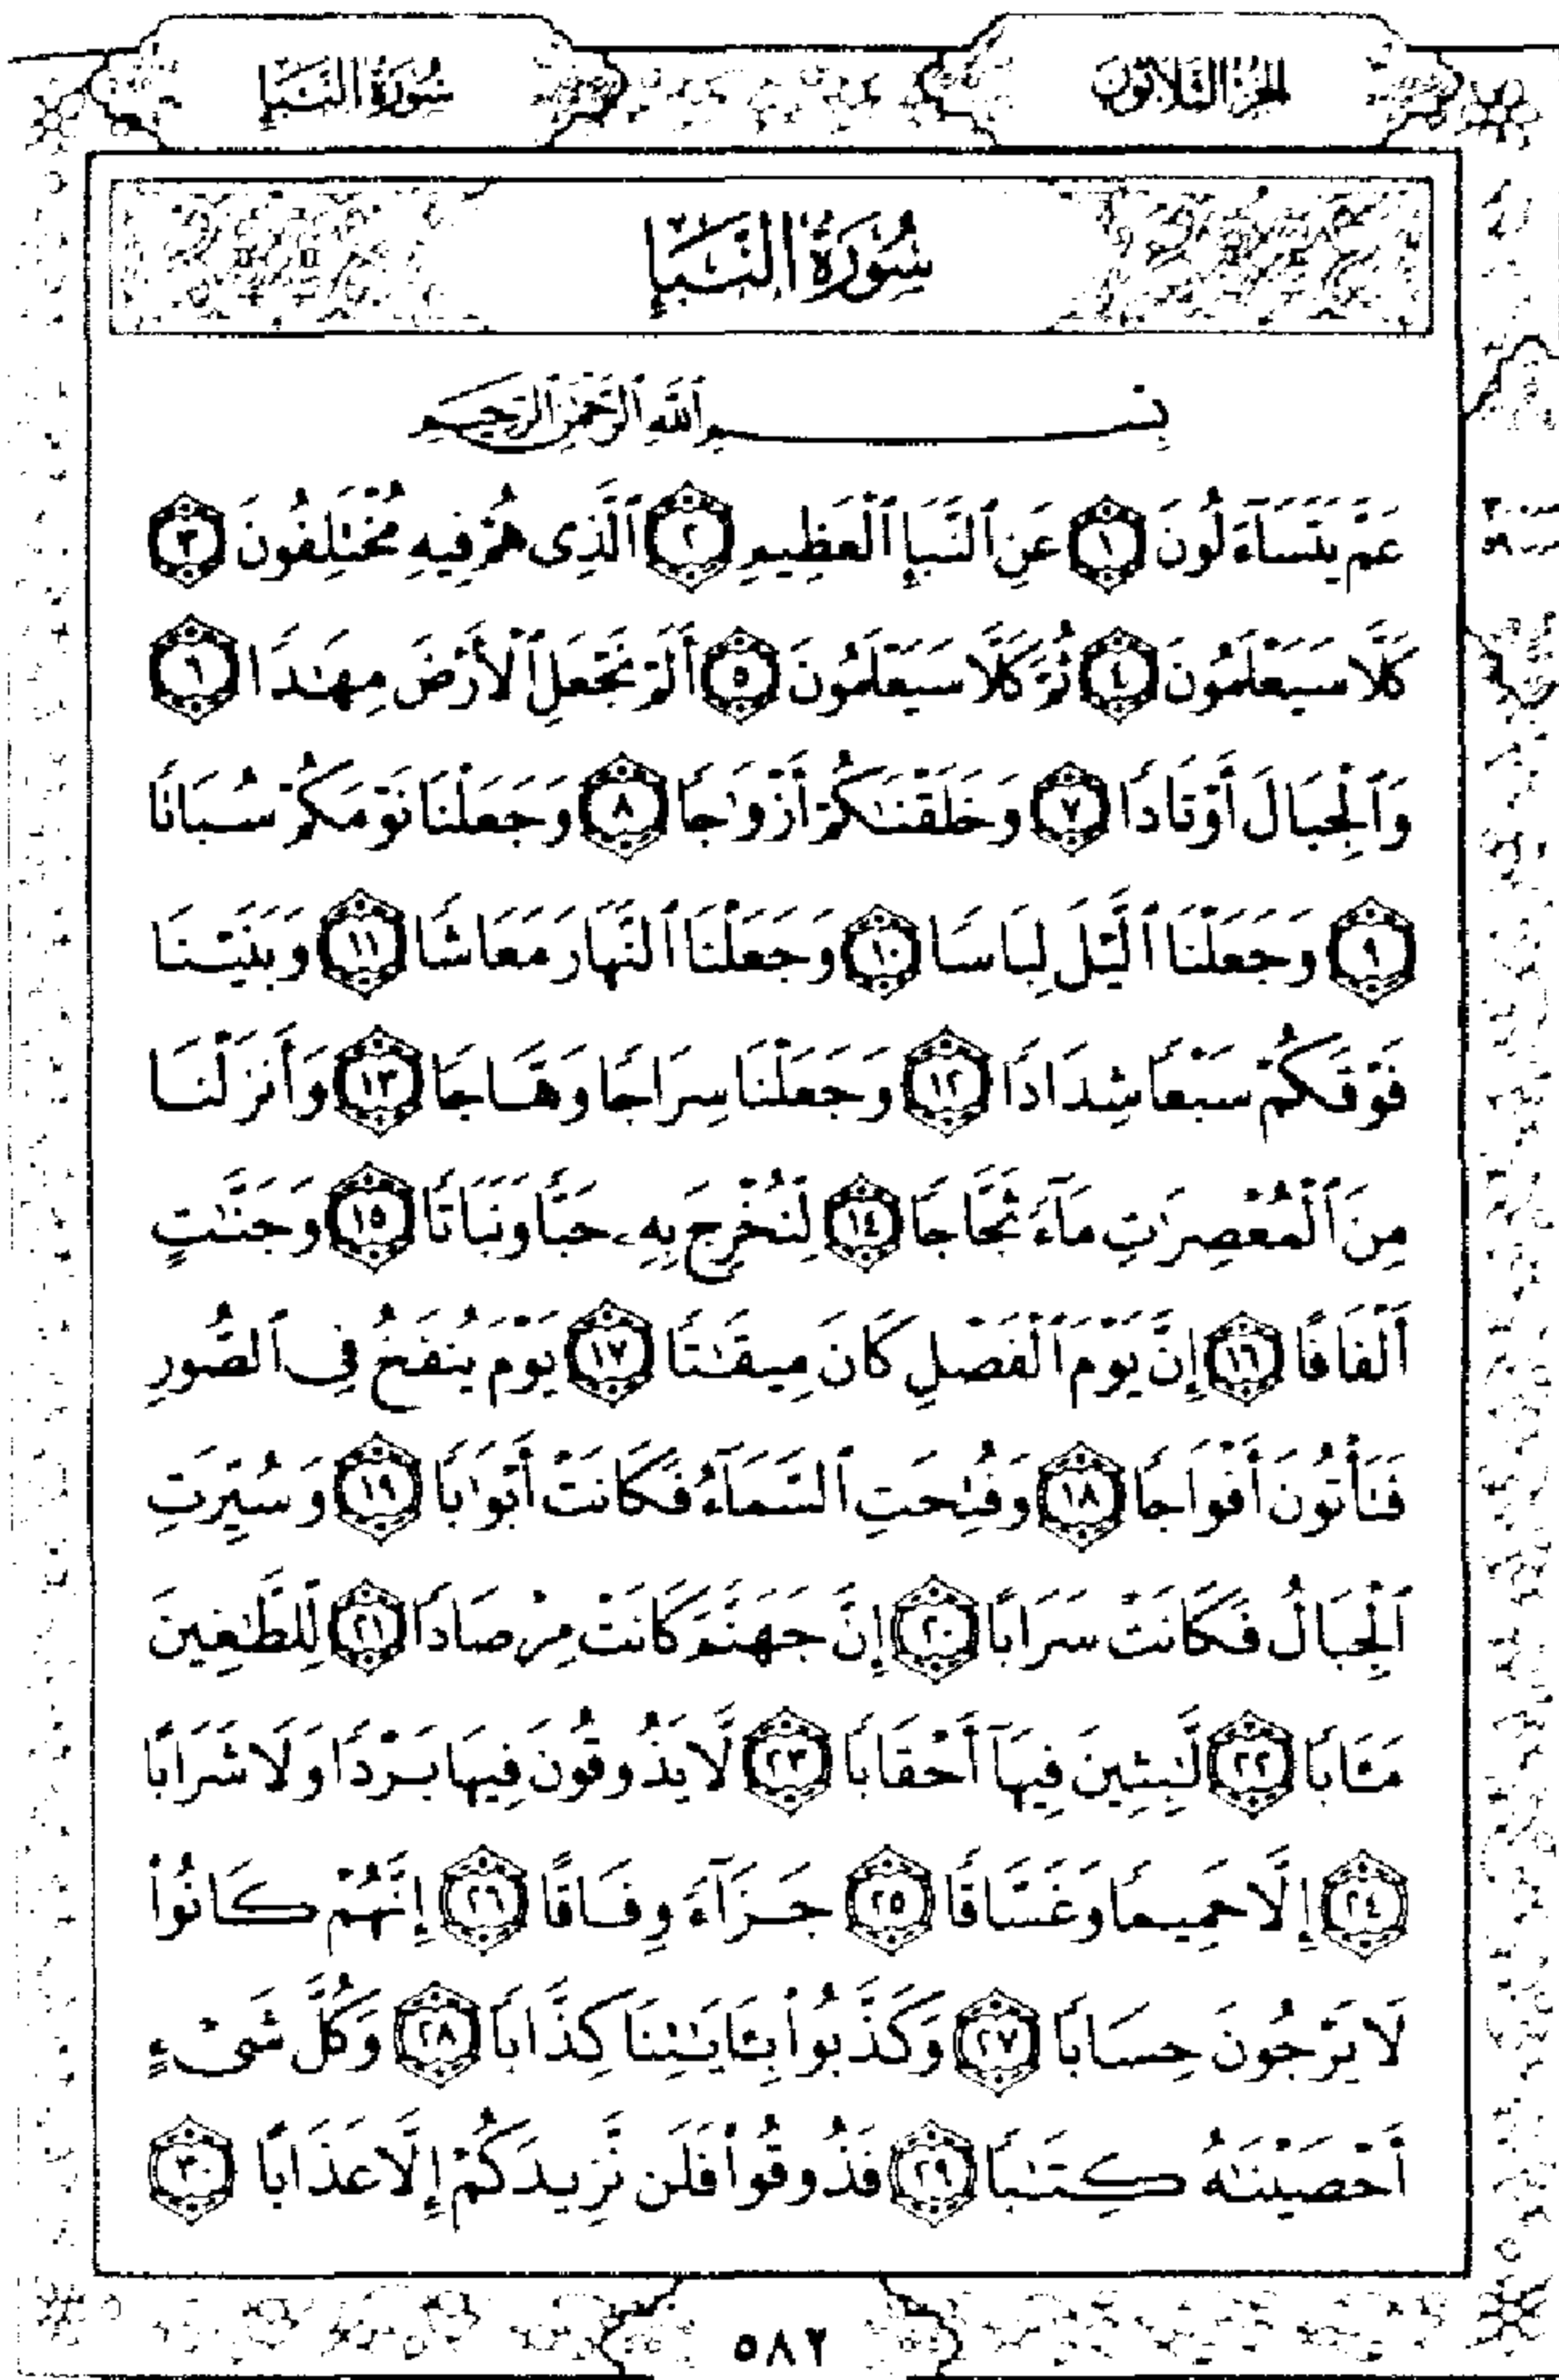 الجزء الثلاثون
سورة النبإ
سُورَةُ النَّبَإِ
بِسْمِ ٱللَّهِ ٱلرَّحْمَٰنِ ٱلرَّحِيمِ
عَمَّ يَتَسَآءَلُونَ ١ عَنِ ٱلنَّبَإِ ٱلْعَظِيمِ ٢ ٱلَّذِى هُمْ فِيهِ مُخْتَلِفُونَ ٣
كَلَّا سَيَعْلَمُونَ ٤ ثُمَّ كَلَّا سَيَعْلَمُونَ ٥ أَلَمْ نَجْعَلِ ٱلْأَرْضَ مِهَٰدًا ٦
وَٱلْجِبَالَ أَوْتَادًا ٧ وَخَلَقْنَٰكُمْ أَزْوَٰجًا ٨ وَجَعَلْنَا نَوْمَكُمْ سُبَاتًا
٩ وَجَعَلْنَا ٱلَّيْلَ لِبَاسًا ١٠ وَجَعَلْنَا ٱلنَّهَارَ مَعَاشًا ١١ وَبَنَيْنَا
فَوْقَكُمْ سَبْعًا شِدَادًا ١٢ وَجَعَلْنَا سِرَاجًا وَهَّاجًا ١٣ وَأَنزَلْنَا
مِنَ ٱلْمُعْصِرَٰتِ مَآءً ثَجَّاجًا ١٤ لِّنُخْرِجَ بِهِۦ حَبًّا وَنَبَاتًا ١٥ وَجَنَّٰتٍ
أَلْفَافًا ١٦ إِنَّ يَوْمَ ٱلْفَصْلِ كَانَ مِيقَٰتًا ١٧ يَوْمَ يُنفَخُ فِى ٱلصُّورِ
فَتَأْتُونَ أَفْوَاجًا ١٨ وَفُتِحَتِ ٱلسَّمَآءُ فَكَانَتْ أَبْوَٰبًا ١٩ وَسُيِّرَتِ
ٱلْجِبَالُ فَكَانَتْ سَرَابًا ٢٠ إِنَّ جَهَنَّمَ كَانَتْ مِرْصَادًا ٢١ لِّلطَّٰغِينَ
مَـَٔابًا ٢٢ لَّٰبِثِينَ فِيهَآ أَحْقَابًا ٢٣ لَّا يَذُوقُونَ فِيهَا بَرْدًا وَلَا شَرَابًا
٢٤ إِلَّا حَمِيمًا وَغَسَّاقًا ٢٥ جَزَآءً وِفَاقًا ٢٦ إِنَّهُمْ كَانُوا۟
لَا يَرْجُونَ حِسَابًا ٢٧ وَكَذَّبُوا۟ بِـَٔايَٰتِنَا كِذَّابًا ٢٨ وَكُلَّ شَىْءٍ
أَحْصَيْنَٰهُ كِتَٰبًا ٢٩ فَذُوقُوا۟ فَلَن نَّزِيدَكُمْ إِلَّا عَذَابًا ٣٠
٥٨٢